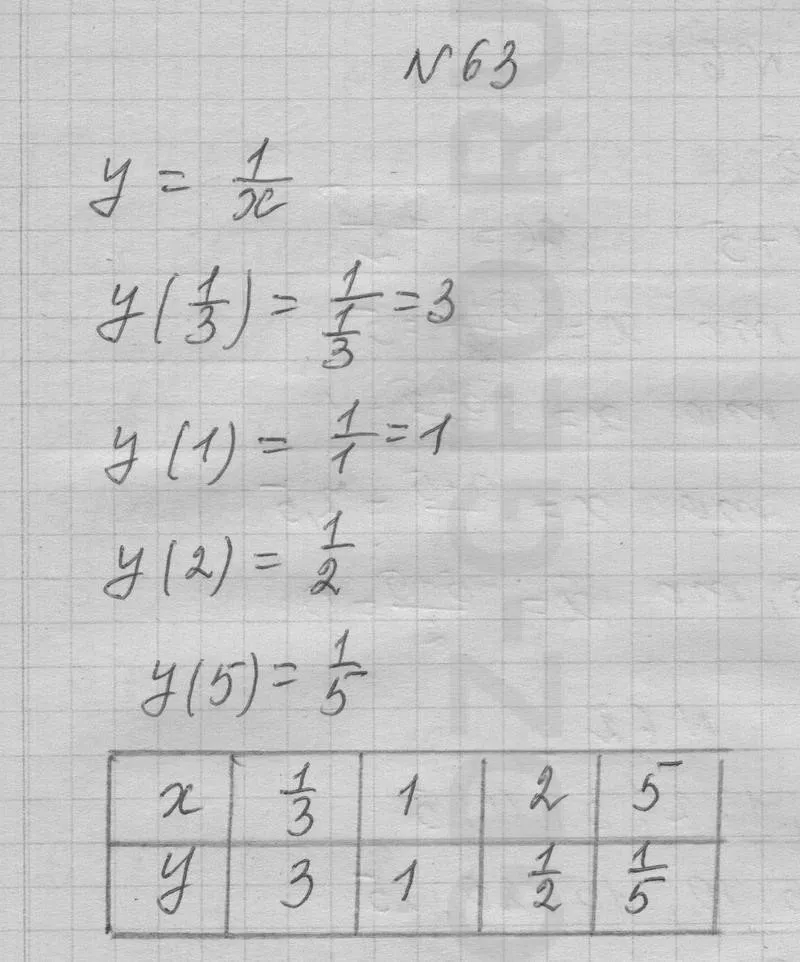 N 63
y = 1/x
y(1/3) = 1/(1/3) = 3
y(1) = 1/1 = 1
y(2) = 1/2
y(5) = 1/5
x 1/3 1 2 5
y 3 1 1/2 1/5